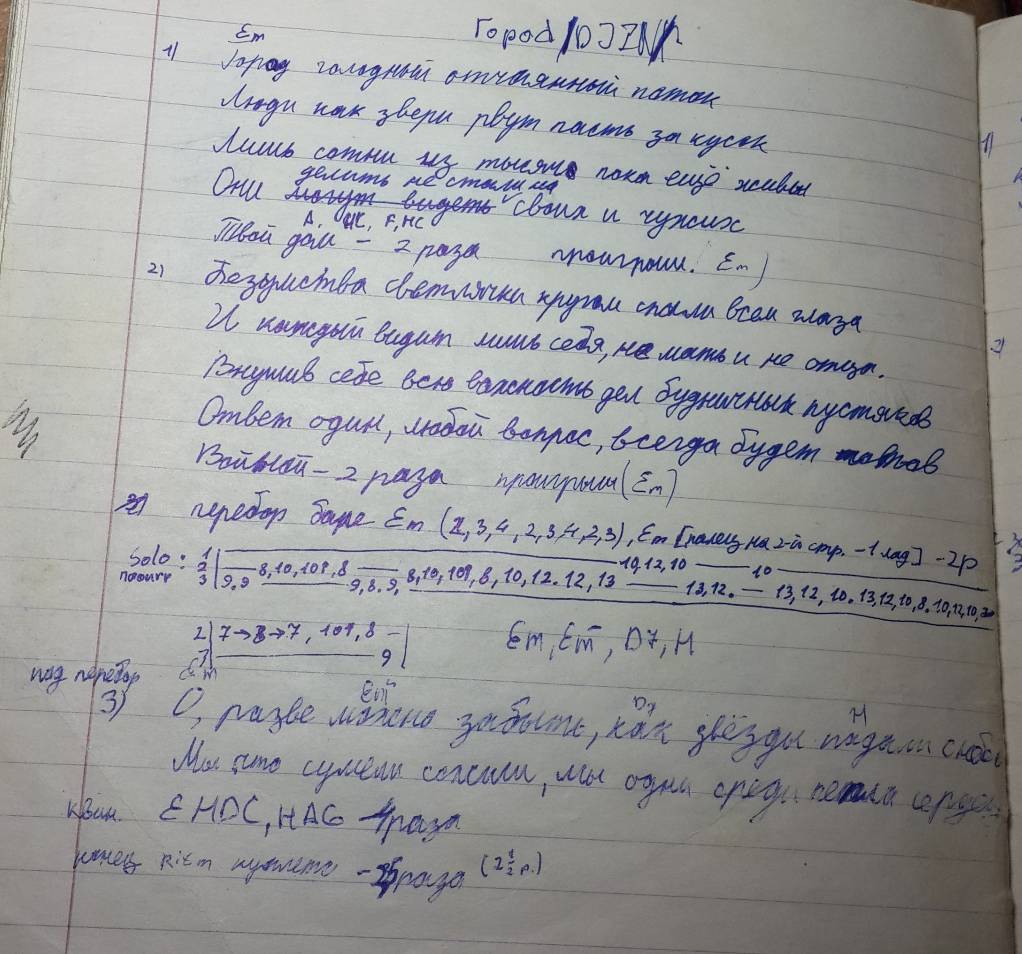 Город DJZN
Em
1) Город голодный отчаянный поток
Люди как звери рвут пасть за кусок
Лишь сотни из тысяч пока ещё живы
делить не стали на
Они могут видеть своих и чужих
A, HC, F, HC
Твой дом - 2 раза проигрыш. Em)
2) Безумства светлячки кругом спали всем глаза
И каждый видит лишь себя, не мать и не отца.
Внушив себе всю важность дел будничных пустяков
Ответ один, любой вопрос, всегда будет таков
Войной - 2 раза проигрыш (Em)
перебор баре Em (2, 3, 4, 2, 3, 4, 2, 3), Em [палец на 2-й стр. - 1 лад] - 2р
Solo: 1 10, 12, 10 10
2 8, 10, 10 8 8, 10, 8, 10, 12. 12, 13 13, 12. 13, 12, 10. 13, 12, 10, 8. 10, 12, 10,
3 9.9 9, 8. 9,
2 7→8→7, 8 -
3 9
Em, Em, D7, H
под перебор Em Em D7 H
3) О, разве можно забыть, как звёзды падали с неба
Мы что сумели сожгли, мы одни среди пепла
квин. EHDC, HAG 4 раза
конец Ritm куплета - раза (2 1/2 р.)